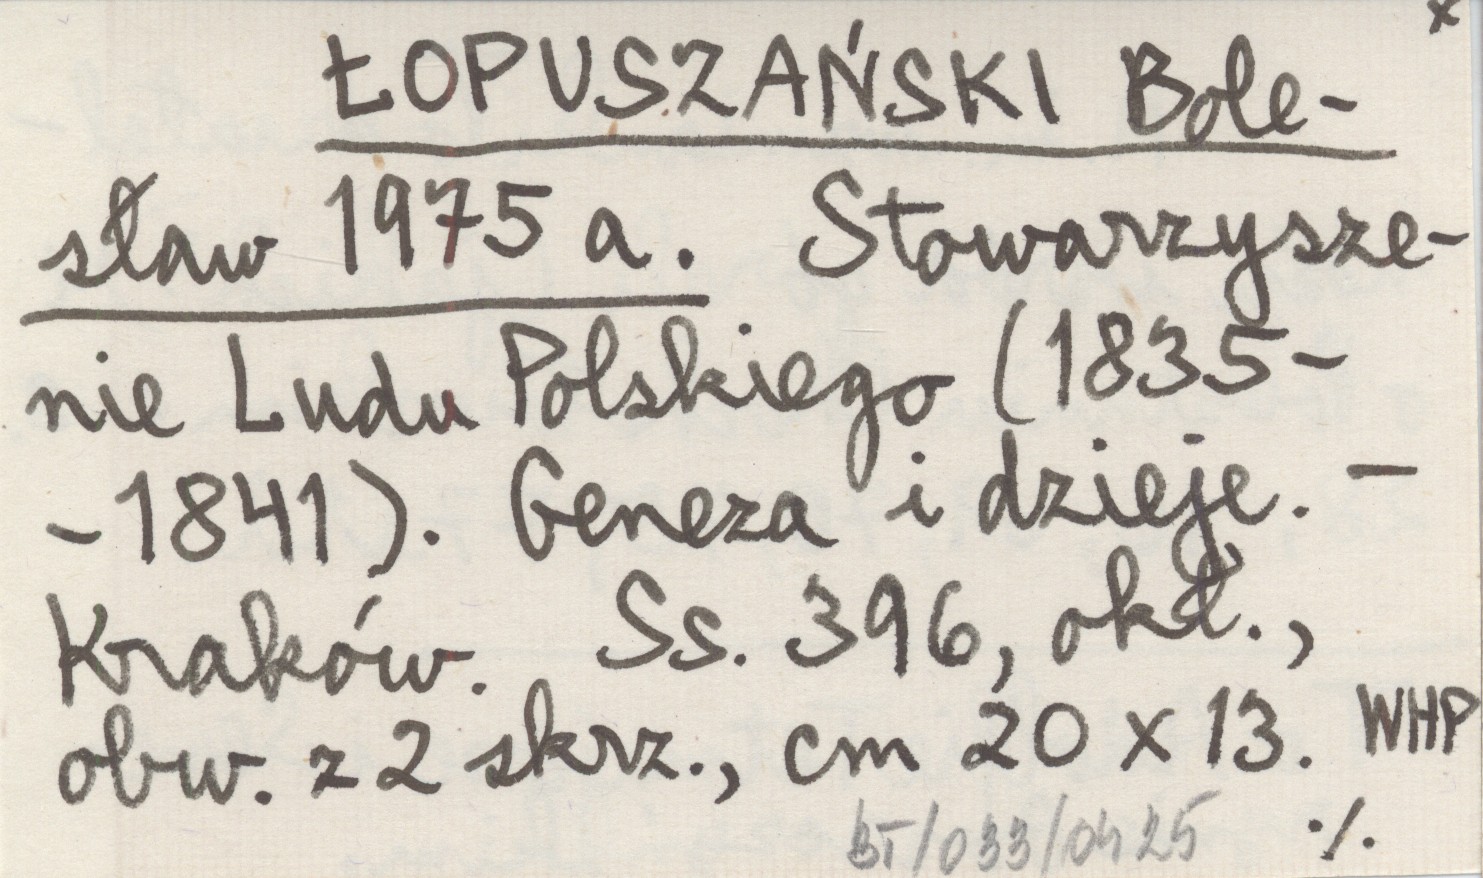 x
ŁOPUSZAŃSKI Bole-
sław 1975 a. Stowarzysze-
nie Ludu Polskiego (1835-
-1841). Geneza i dzieje. —
Kraków. Ss. 396, okł.,
obw. z 2 skrz., cm 20 x 13. WHP
BT/033/0425 ·/.